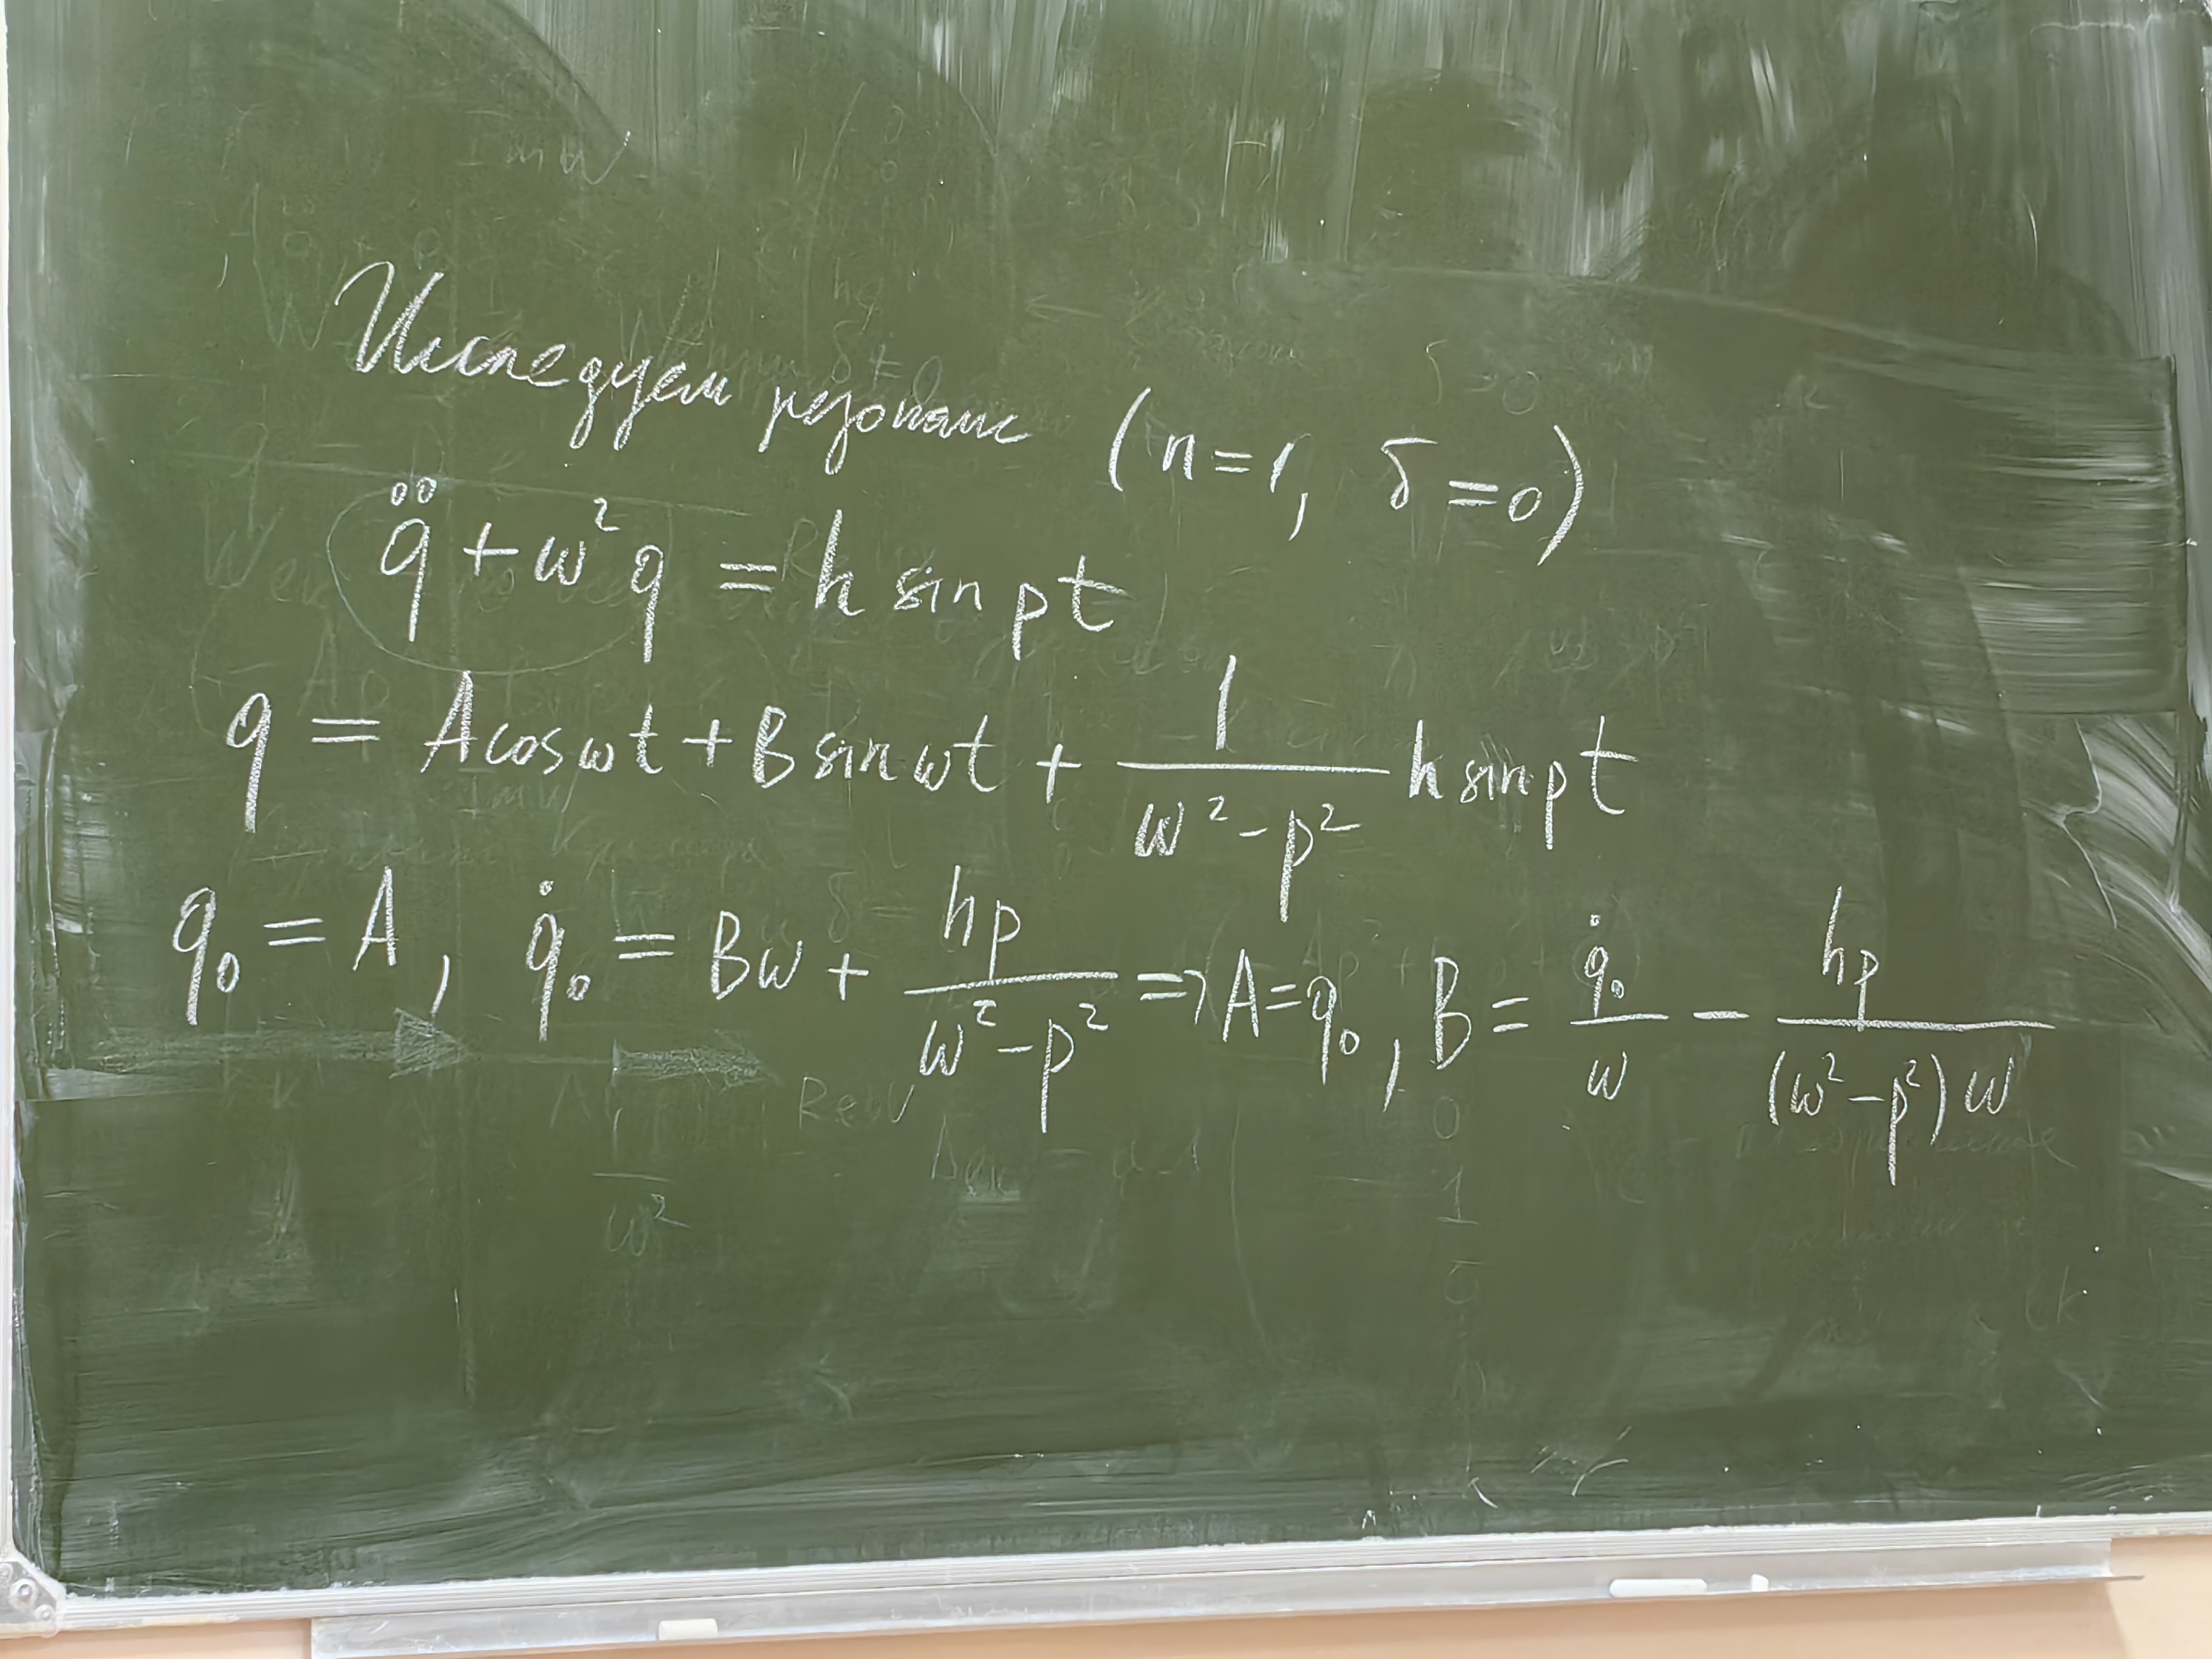 Исследуем резонанс (n=1, δ=0)
q̈ + ω² q = h sin pt
q = A cos ωt + B sin ωt + \frac{1}{ω² - p²} h sin pt
q₀ = A, q̇₀ = Bω + \frac{hp}{ω² - p²} => A = q₀, B = \frac{q̇₀}{ω} - \frac{hp}{(ω² - p²) ω}